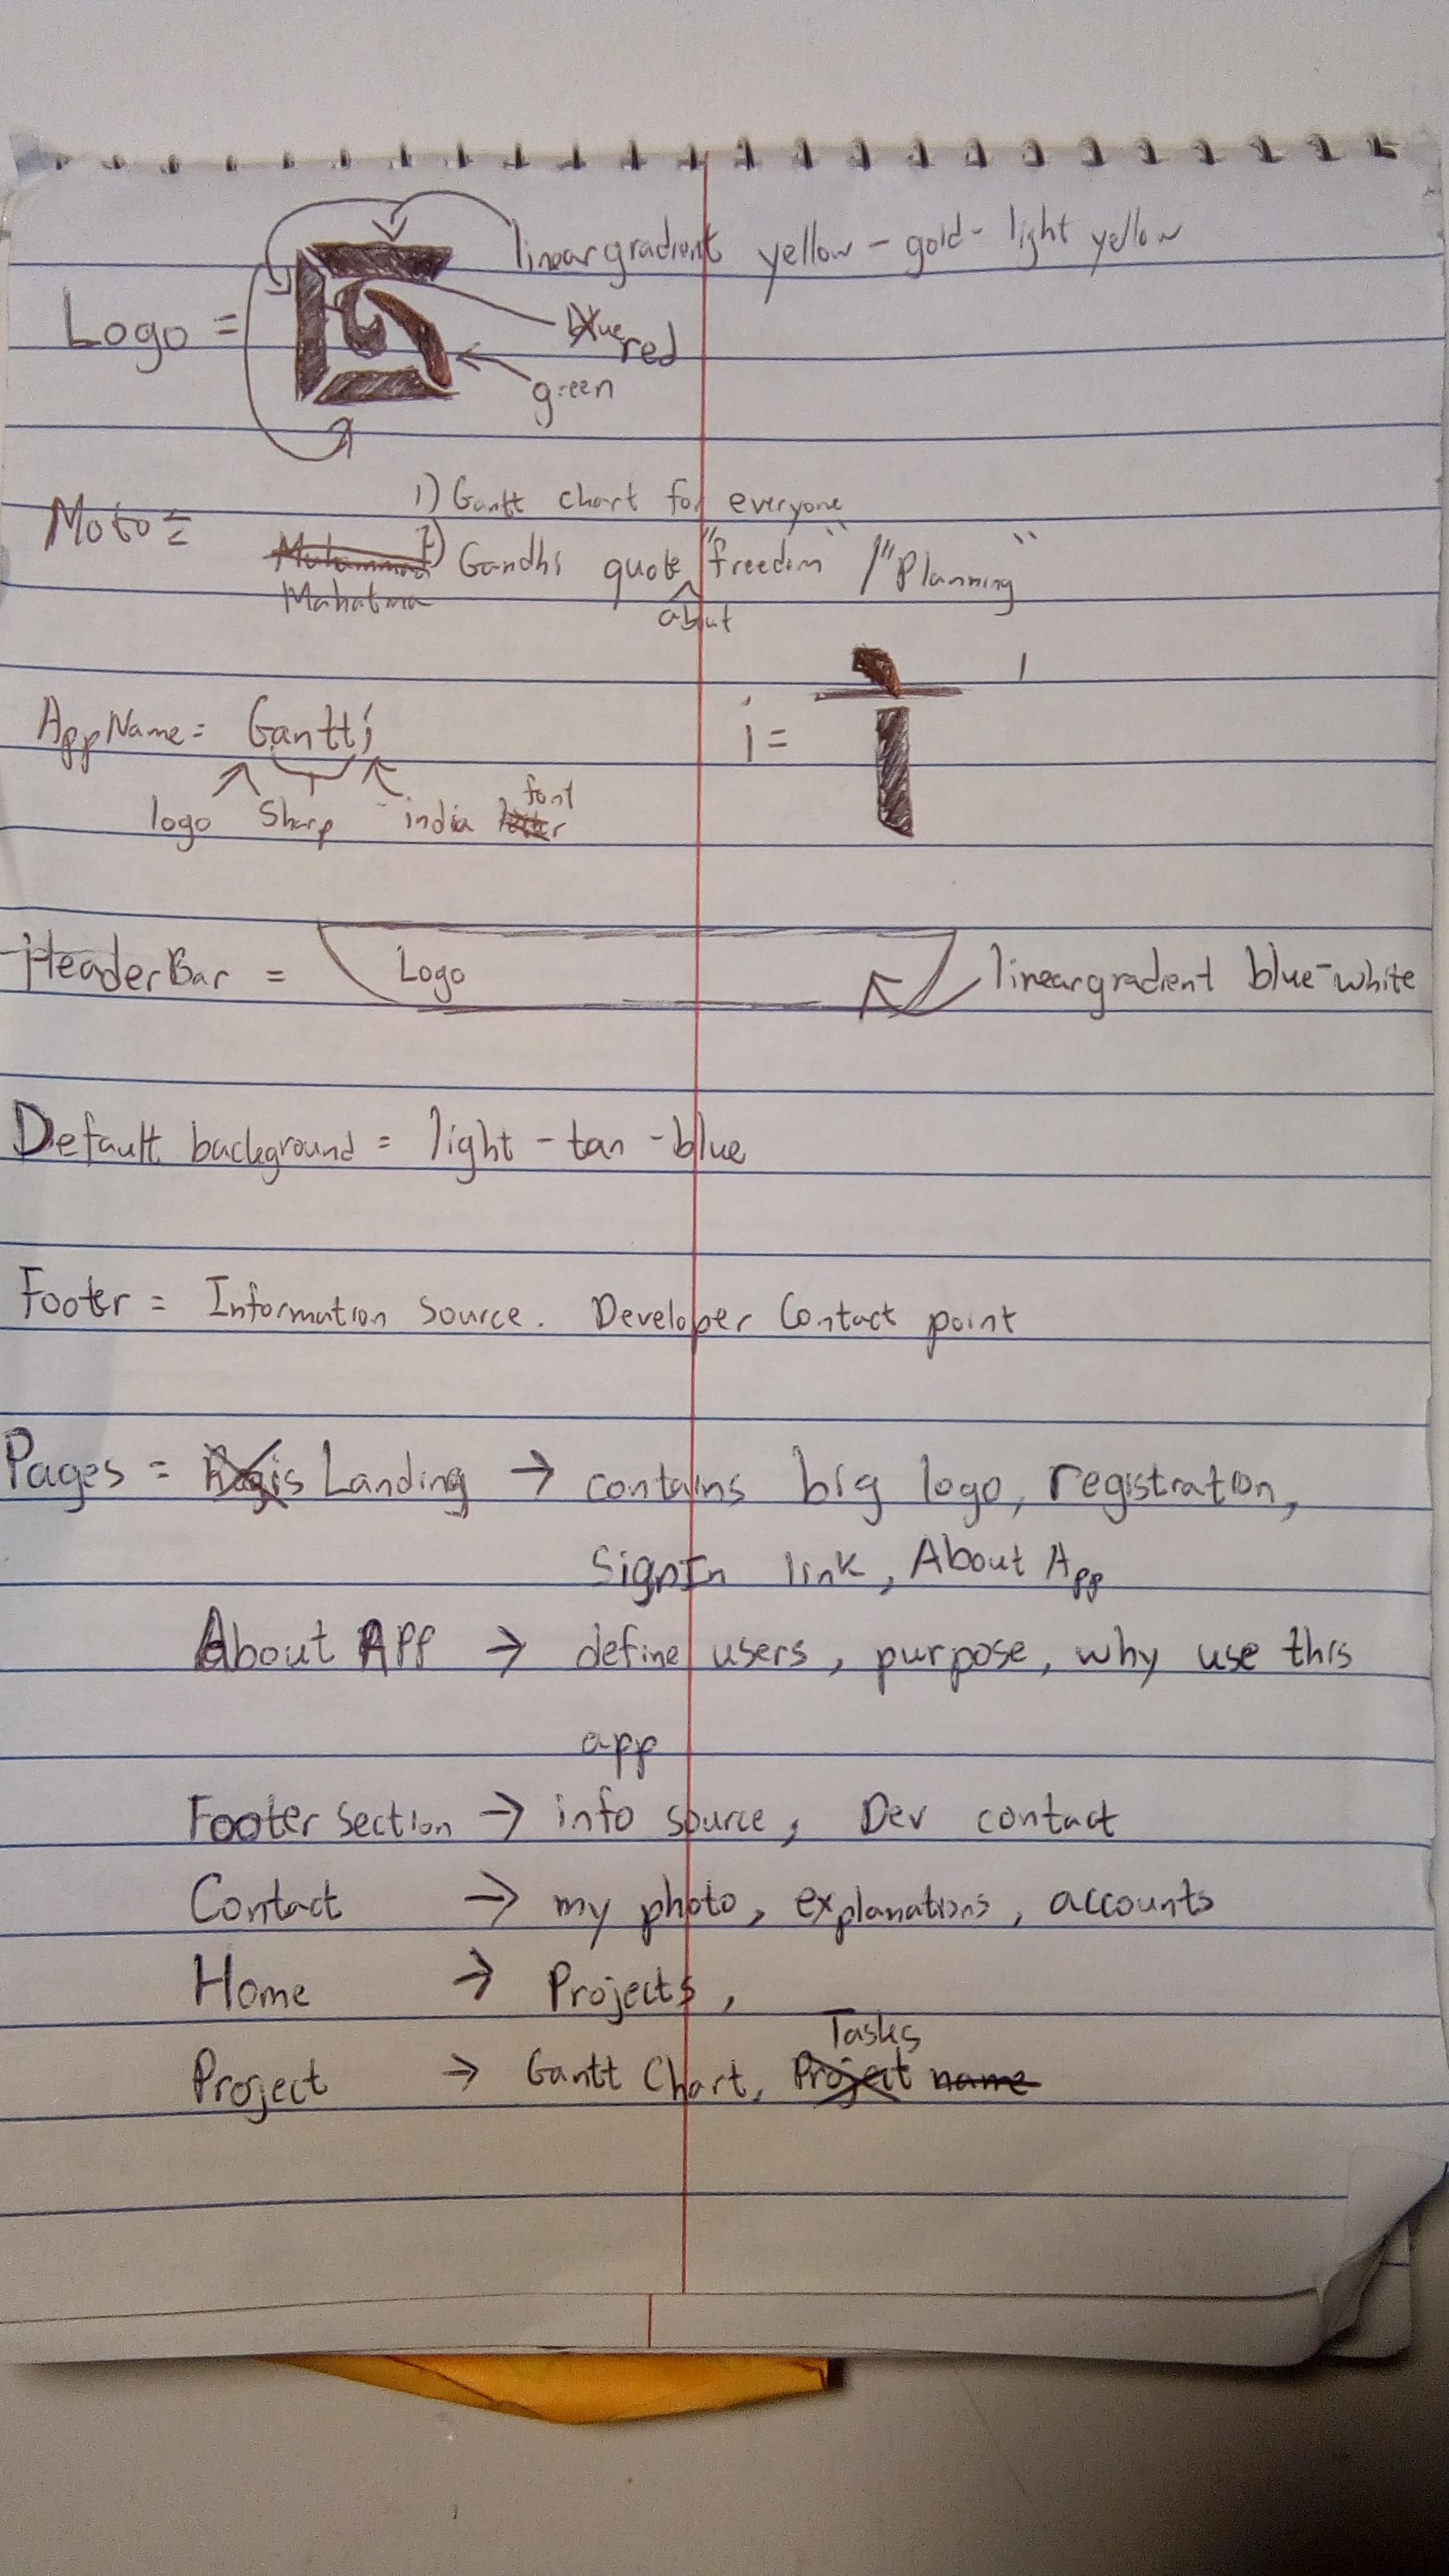 lineargradient yellow - gold - light yellow
Logo =
blue red
green
Moto =
1) Gantt chart for everyone
Muhammad 2) Gandhi quote about "freedom" / "Planning"
Mahatma
AppName = Gantti
logo sharp india font
i =
HeaderBar = Logo
lineargradient blue-white
Default background = light - tan - blue
Footer = Information Source. Developer Contact point
Pages = Regis Landing → contains big logo, registration,
SignIn link, About App
About App → define users, purpose, why use this
app
Footer section → info source, Dev contact
Contact → my photo, explanations, accounts
Home → Projects,
Tasks
Project → Gantt Chart, Project name